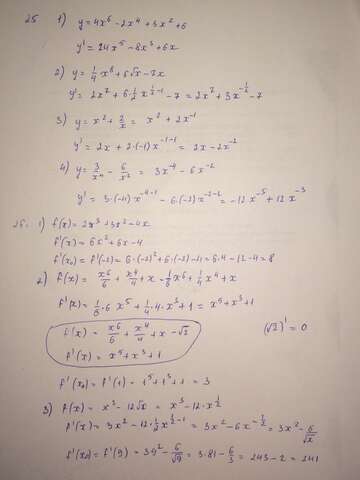 25 1) y=4x⁶-2x⁴+3x²+6
y'=24x⁵-8x³+6x
2) y=1/4 x⁸+6√x-7x
y'=2x²+6·1/2 x^(1/2-1)-7=2x²+3x^(-1/2)-7
3) y=x²+2/x= x²+2x⁻¹
y'=2x+2·(-1)x⁻¹⁻¹= 2x-2x⁻²
4) y=3/x⁴-6/x²=3x⁻⁴-6x⁻²
y'=3·(-4)x⁻⁴⁻¹-6·(-2)x⁻²⁻¹=-12x⁻⁵+12x⁻³
26. 1) f(x)=2x³+3x²-4x
f'(x)=6x²+6x-4
f'(x₀)=f'(-2)=6·(-2)²+6·(-2)-4=6·4-12-4=8
2) f(x)=x⁶/6+x⁴/4+x=1/6x⁶+1/4x⁴+x
f'(x)=1/6·6x⁵+1/4·4x³+1=x⁵+x³+1
f'(x)=x⁶/6+x⁴/4+x-√2 (√2)'=0
f'(x)=x⁵+x³+1
f'(x₀)=f'(1)=1⁵+1³+1=3
3) f(x)=x³-12√x=x³-12·x^(1/2)
f'(x)=3x²-12·1/2x^(1/2-1)=3x²-6x^(-1/2)=3x²-6/√x
f'(x₀)=f'(9)=3·9²-6/√9=3·81-6/3=243-2=241